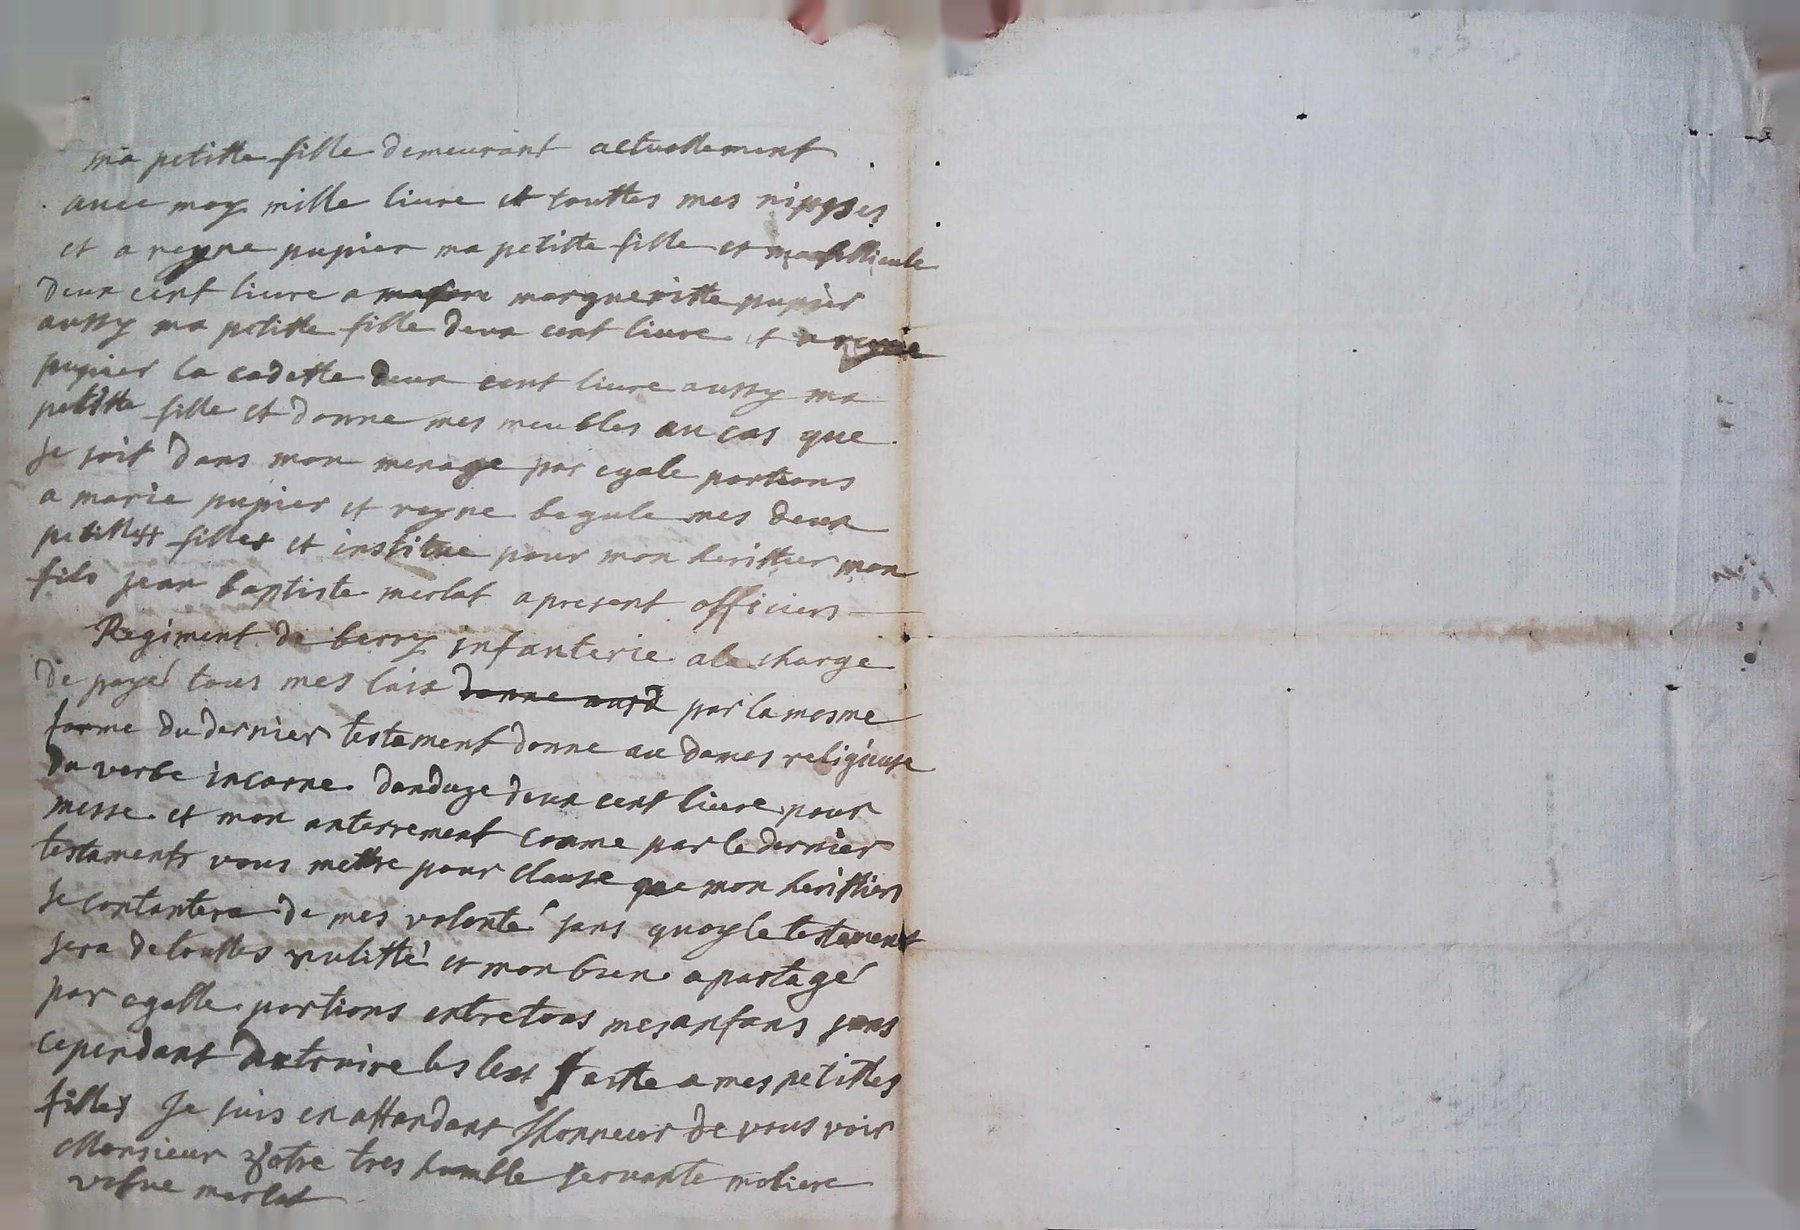 ma petitte fille demeurant actuellement
avec moy mille livre et touttes mes nippes
et a reyne pupier ma petitte fille et ma filleule
deux cent livre a margueritte pupier
aussy ma petitte fille deux cent livre et a reyne
pupier la cadette deux cent livre aussy ma
petitte fille et donne mes meubles au cas que
je soit dans mon menage par egale portions
a marie pupier et reyne begule mes deux
petittes filles et institue pour mon herittier mon
fils jean baptiste merlat a present officiers
Regiment de berry infanterie a la charge
de payé tous mes lais donne par la mesme
forme du dernier testament donne au dames religieuse
du verbe incarne danduze deux cent livre pour
messe et mon anterrement comme par le dernier
testaments vous mettre pour clause que mon herittiers
se contantera de mes volonté sans quoy le testement
sera de touttes nulitté et mon bien a partagé
par egalle portions entre tous mes anfans sans
cependant detruire les les faitte a mes petittes
filles Je suis en attandant lhonneur de vous voir
Monsieur Votre tres humble servante moliere
vefve merlat